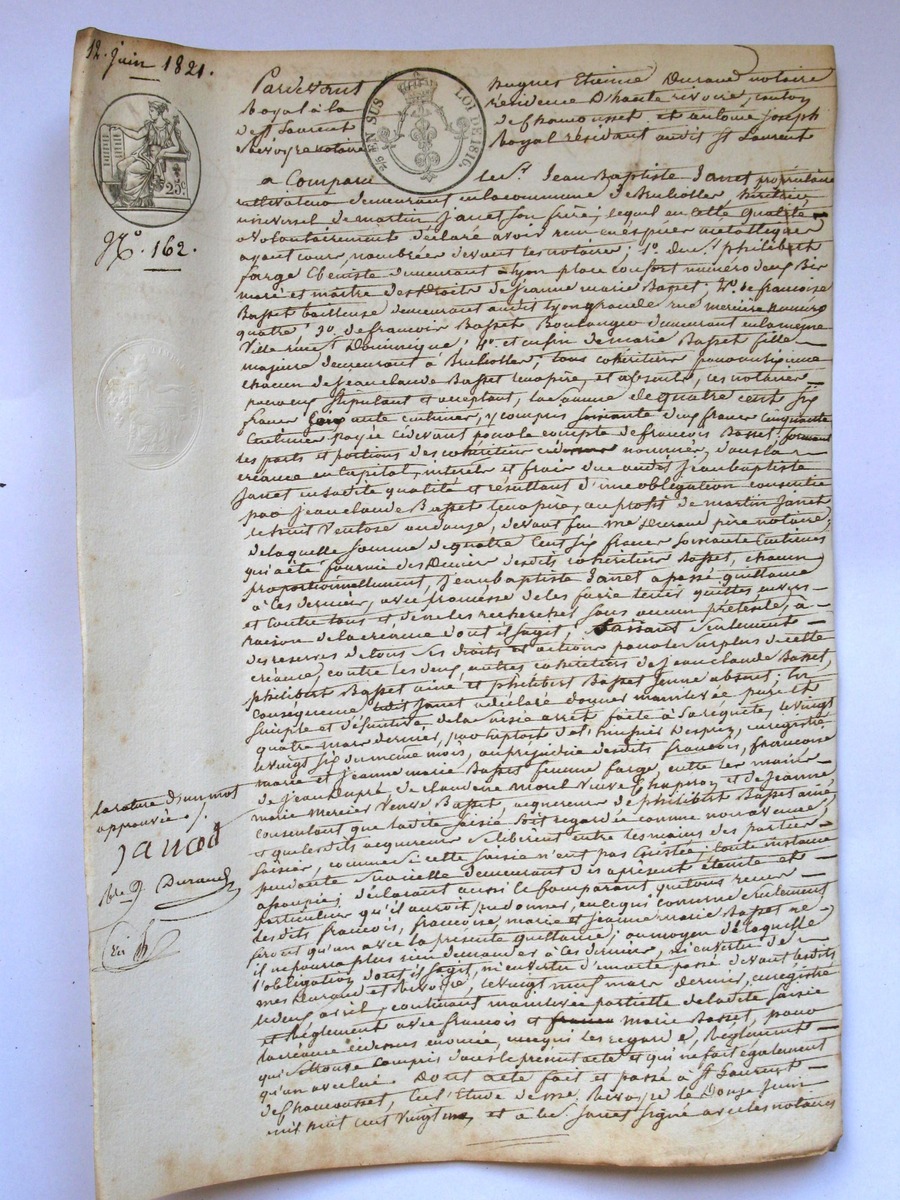 12. juin 1821.
25 EN SUS LOI DE 1816.
25c.
N.o 162.
Pardevant hugues Etienne Durand notaire
Royal à la résidence D'haute rivoire, canton
de st Laurent de chamousset. et antoine joseph
Révoyre notaire Royal résidant audit st Laurent
a Comparu le sr. Jean Baptiste Janet propriétaire
cultivateur demeurant en la commune de Brullioller héritier
universel de martin Janet son frère; lequel en cette qualité
a volontairement déclaré avoir reçu en espèces métalliques
ayant cour, nombrées devant les notaires; 1o du sr. philibert
farge Ebeniste demeurant à Lyon place confort numéro deux
mari et maitre des Droits de jeanne marie Basset; 2o. de francoise
Basset tailleuse demeurant audit Lyon grande rue mercière numéro
quatre; 3o. de francois Basset Boulanger demeurant en la même
Ville rue st Dominique; 4o. et enfin de marie Basset fille
majeure demeurant à Brullioller; tous cohéritiers pour un sixième
chacun de jean claude Basset leur père, et absents, ces notaires
pour eux stipulant et acceptant, la somme de quatre cent six
francs soixante centimes, y compris soixante deux francs cinquante
centimes payée cidevant pour le compte de francois Basset; formant
les parts et portions des cohéritiers nommés, dans la
créance en capital, interets et frais due audit jean baptiste
Janet en sadite qualité et résultant d'une obligation consentie
par jean claude Basset leur père, au profit de martin Janet
le huit Ventose an douze, devant feu me Durand père notaire;
de laquelle somme de quatre cent six francs soixante centimes
qui a été fournie des deniers desdits cohéritiers Basset, chacun
proportionnellement, jean baptiste Janet a passé quittance
à ces derniers, avec promesse de les faire tenir quittes, envers
et contre tous et de ne les rechercher sous aucun prétexte, à
raison de la créance dont il s'agit, faisant seulement
des reserves de tous ses droits et actions pour le surplus de cette
créance, contre les deux autres cohéritiers de jean claude Basset,
philibert Basset ainé et philibert Basset jeune absent; En
conséquence ledit Janet a déclaré donner mainlevée pure et
simple et définitive de la saisie arret faite à sa requête, le vingt
quatre mars dernier, par exploit de l'huissier Desprez, enregistré
le vingt six du même mois, au préjudice desdits francois, francoise
marie et jeanne marie Basset femme farge, entre les mains
de jean Dupré, de claudine morel Veuve Chapon, et de jeanne
marie mercier Veuve Basset, acquereurs de philibert Basset ainé,
consentant que ladite saisie soit regardée comme non avenue,
et que lesdits acquereurs se libèrent entre les mains des parties
saisies, comme si cette saisie n'eut pas existée; toute instance
pendante sur icelle demeurant dès aprésent éteinte et
assoupie; déclarant aussi le comparant que tous recus
particuliers qu'il auroit pu donner, en ce qui concerne seulement
lesdits francois, francoise, marie et jeanne marie Basset ne
feront qu'un avec la présente quittance; au moyen de laquelle
il ne pourra plus rien demander à ces derniers, ni en vertu de
l'obligation dont il s'agit, ni en vertu d'un acte passé devant lesdits
mes Durand et Révoire, le vingt neuf mars dernier, enregistré
le deux avril, contenant mainlevée partielle de ladite saisie
et Réglement avec francois et marie Basset, pour
la créance cidessus énoncée, en ce qui les regarde, Réglement
qui se trouve compris dans le présent acte et qui ne fait également
qu'un avec lui. Dont acte fait et passé à st Laurent
de Chamousset, en l'étude de me. Révoyre le Douze juin
mil huit cent vingt un, et a le sr. Janet signé avec les notaires
la rature d'un mot
approuvée ./.
Janet
Durand